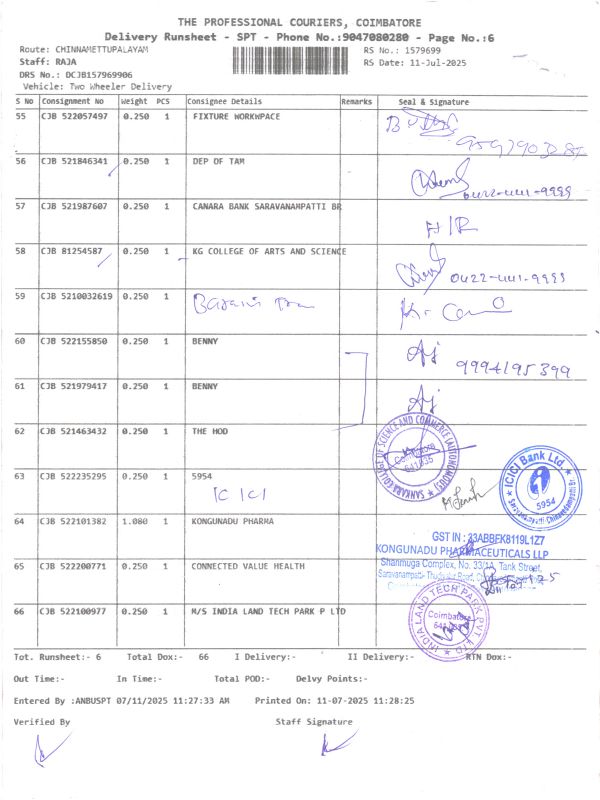 THE PROFESSIONAL COURIERS, COIMBATORE
Delivery Runsheet - SPT - Phone No.:9047080280 - Page No.:6
Route: CHINNAMETTUPALAYAM RS No.: 1579699
Staff: RAJA RS Date: 11-Jul-2025
DRS No.: DCJB157969906
Vehicle: Two Wheeler Delivery
S No Consignment No Weight PCS Consignee Details Remarks Seal & Signature
55 CJB 522057497 0.250 1 FIXTURE WORKWPACE
56 CJB 521846341 0.250 1 DEP OF TAM 0422-441-9999
57 CJB 521987607 0.250 1 CANARA BANK SARAVANAMPATTI BR H/R
58 CJB 81254587 0.250 1 KG COLLEGE OF ARTS AND SCIENCE 0422-441-9999
59 CJB 5210032619 0.250 1
60 CJB 522155850 0.250 1 BENNY Aj 9994195399
61 CJB 521979417 0.250 1 BENNY Aj
62 CJB 521463432 0.250 1 THE HOD
SANKARA COLLEGE OF SCIENCE AND COMMERCE (AUTONOMOUS)
Coimbatore
641 035
63 CJB 522235295 0.250 1 5954
ICICI
ICICI Bank Ltd.
5954
64 CJB 522101382 1.080 1 KONGUNADU PHARMA
GST IN : 33ABBFK8119L1Z7
KONGUNADU PHARMACEUTICALS LLP
Shanmuga Complex, No. 33/1A, Tank Street,
65 CJB 522200771 0.250 1 CONNECTED VALUE HEALTH
66 CJB 522100977 0.250 1 M/S INDIA LAND TECH PARK P LTD
INDIA LAND TECH PARK PVT LTD
Coimbatore
641 035
Tot. Runsheet:- 6 Total Dox:- 66 I Delivery:- II Delivery:- RTN Dox:-
Out Time:- In Time:- Total POD:- Delvy Points:-
Entered By :ANBUSPT 07/11/2025 11:27:33 AM Printed On: 11-07-2025 11:28:25
Verified By Staff Signature